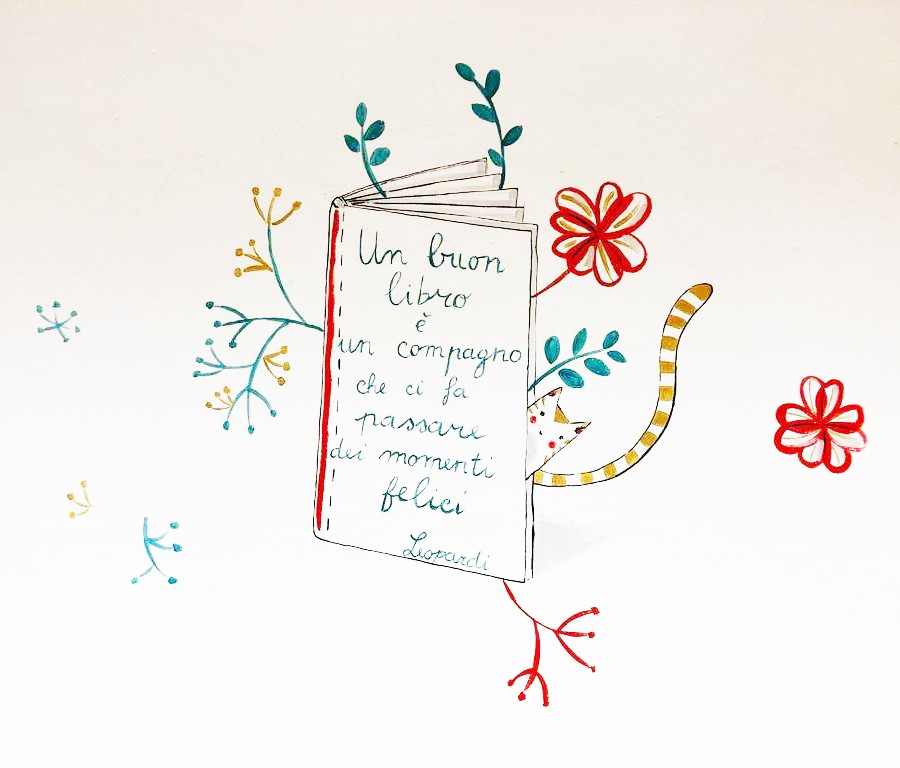 Un buon
libro
è
un compagno
che ci fa
passare
dei momenti
felici
Leopardi